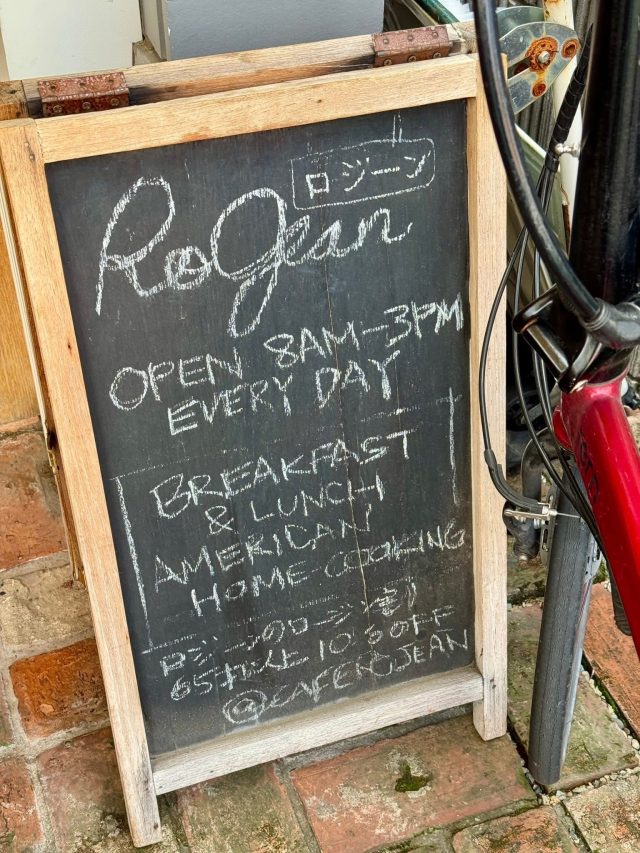 ロジーン
RoJean
OPEN 8AM-3PM
EVERY DAY
BREAKFAST
& LUNCH
AMERICAN
HOME COOKING
ロジーンのロージン割
65才以上 10%OFF
@CAFEROJEAN